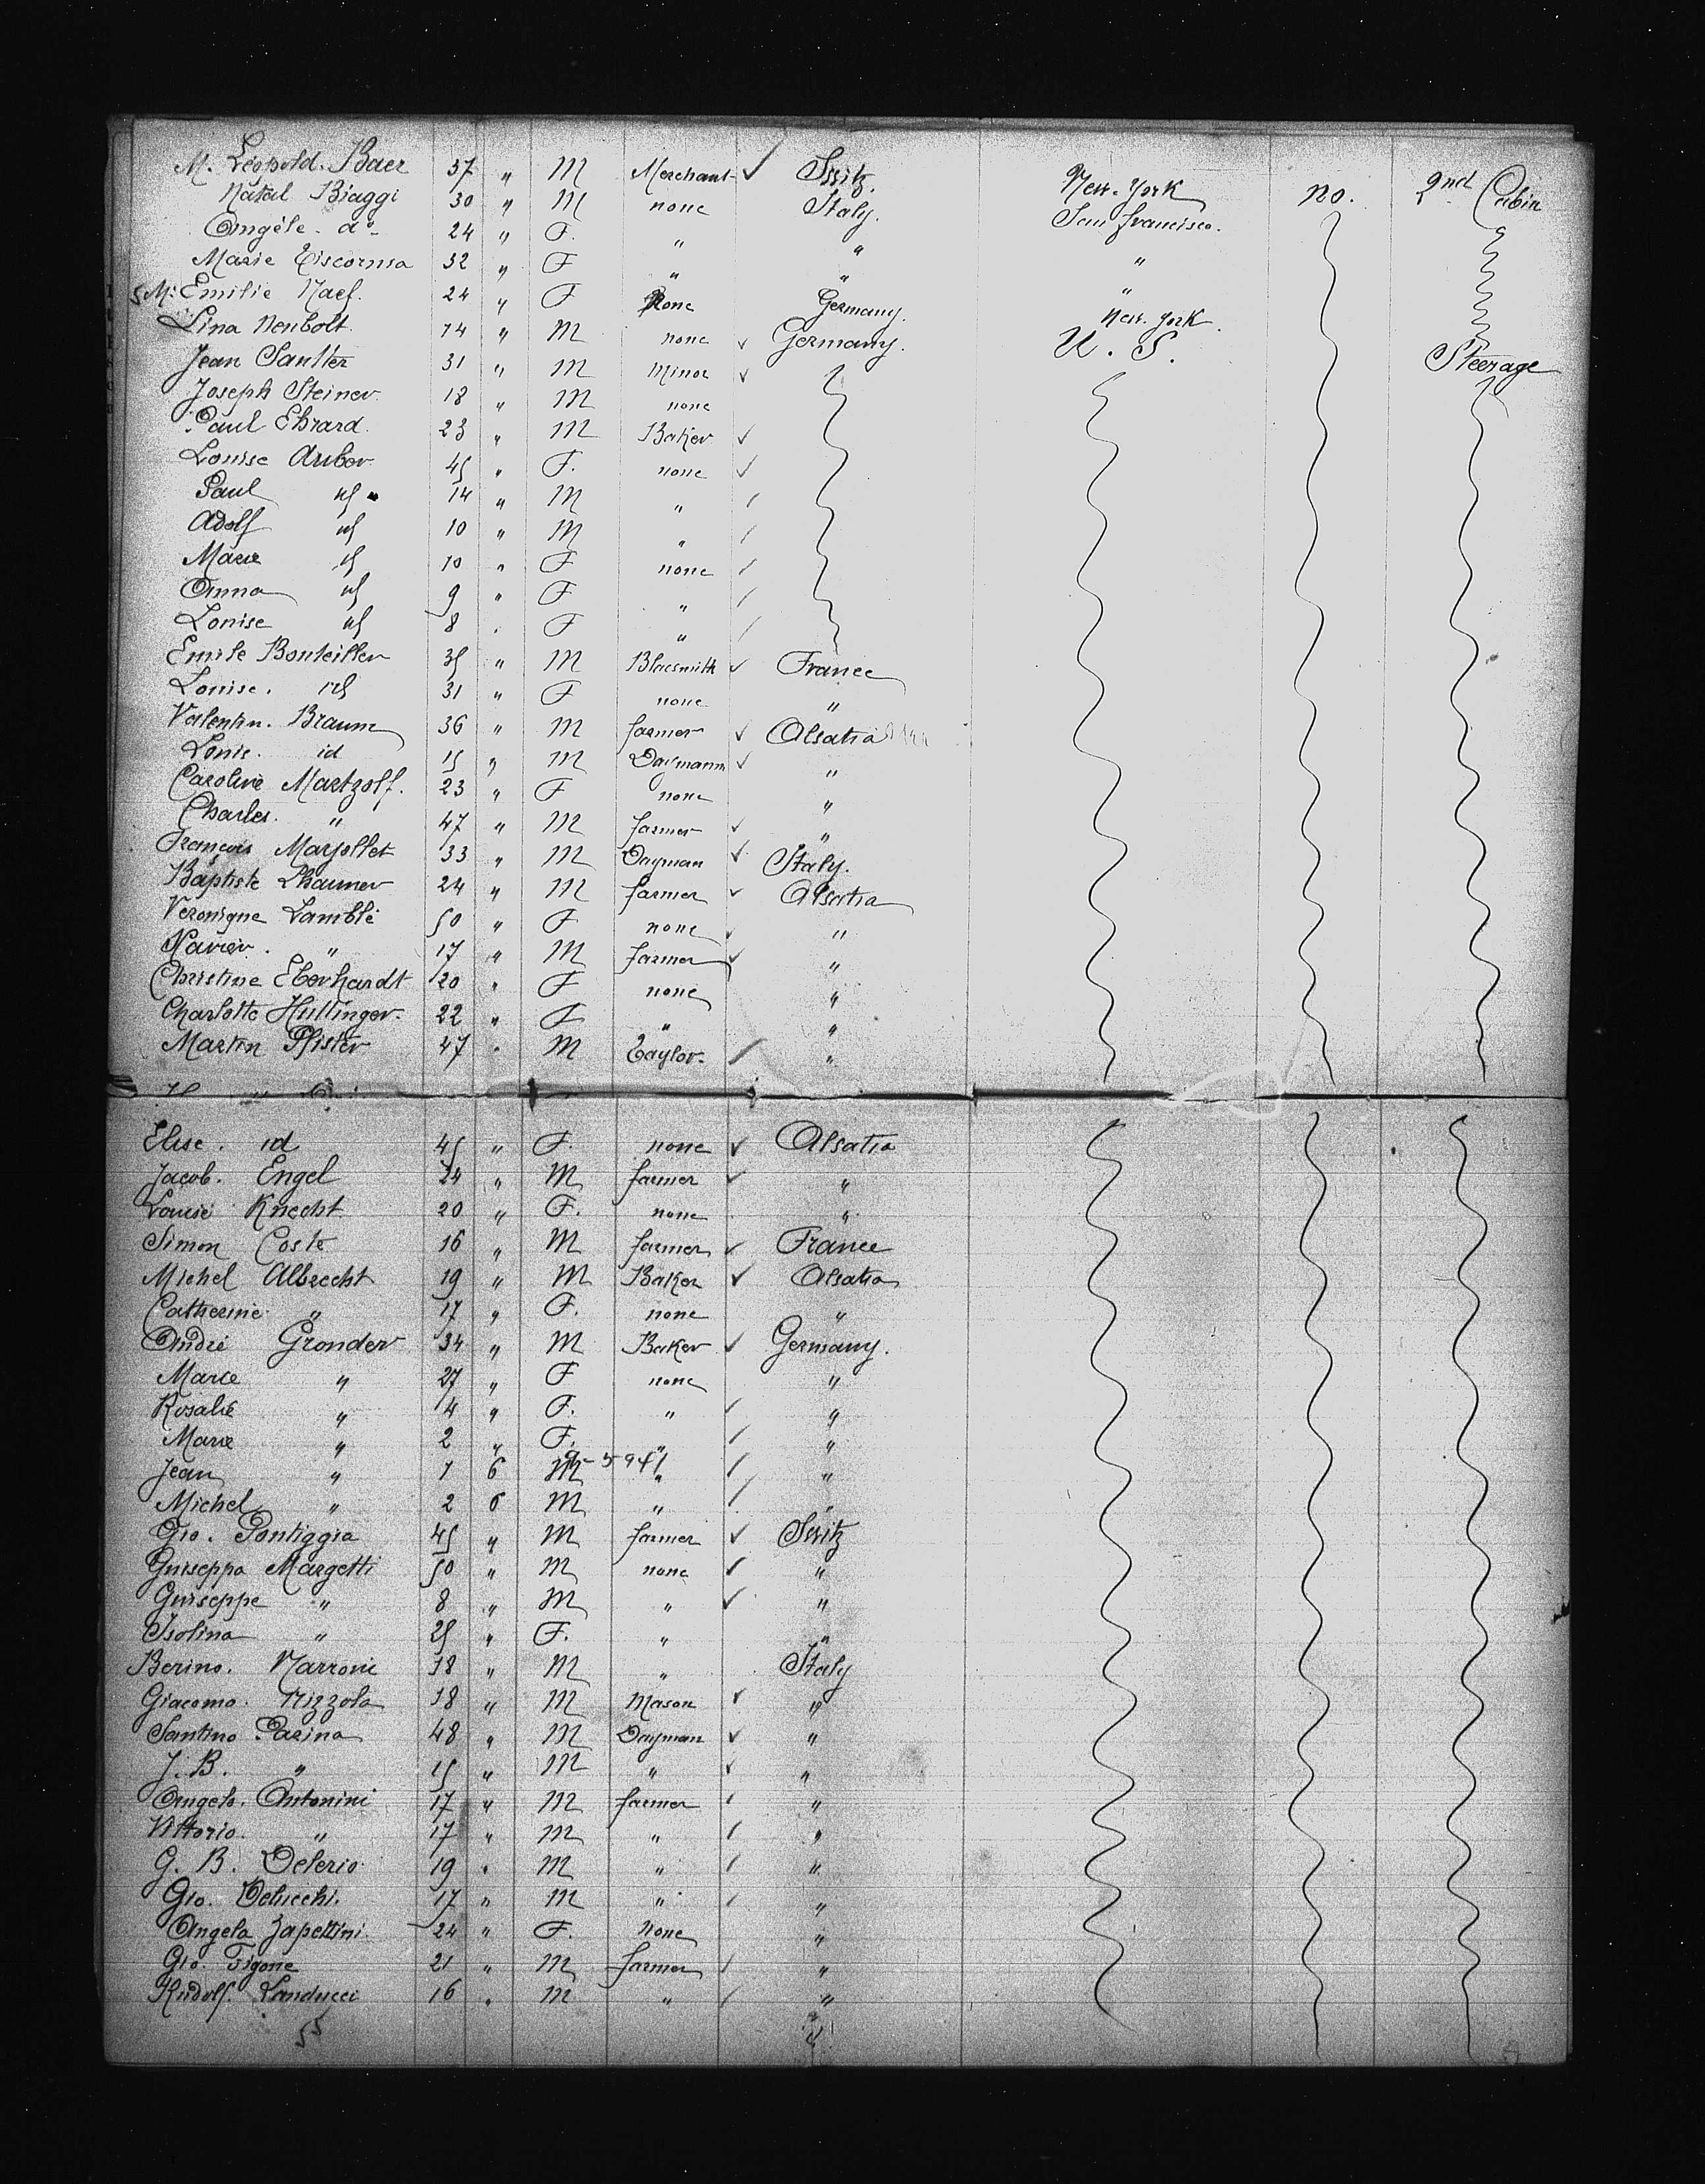 M. Léopold. Baer 37 " M Merchant ✓ Switz. New-York no. 2nd Cabin
Natal Biaggi 30 " M none Italy. San francisco.
Angèle - do - 24 " F. " " "
Marie Tiscornia 32 " F " " "
M: Emilie Naef. 24 " F None Germany. New. york.
Lina Nenbolt. 14 " M none ✓ Germany. U. S. Steerage
Jean Sautter 31 " M Minor ✓
Joseph Steiner 18 " M none
Paul Ehrard. 23 " M Baker ✓
Louise Arbor 45 " F. none ✓
Paul id 14 " M " /
Adolf id 10 " M " /
Marie id 10 " F none /
Anna id 9 " F " /
Louise id 8 " F " /
Emile Bouteiller 35 " M Blacsmith ✓ France
Louise. id 31 " F none "
Valentin. Braun 36 " M farmer ✓ Alsatia
Louis. id 15 " M Daymann ✓ "
Caroline Martzolf. 23 " F none "
Charles. " 47 " M farmer ✓ "
François Marjollet 33 " M Dayman ✓ Italy.
Baptiste Lhaumer 24 " M farmer ✓ Alsatia
Veronique Lamblé 50 " F none "
Xavier. " 17 " M farmer ✓ "
Christine Eberhardt 20 " F none "
Charlotte Hullinger. 22 " F " "
Martin Pfister 47 " M Taylor. / "
Elise. id 45 " F. none ✓ Alsatia
Jacob. Engel 24 " M farmer ✓ "
Louise Knecht 20 " F. none "
Simon Coste 16 " M farmer ✓ France
Michel Albrecht 19 " M Baker ✓ Alsatia
Catherine " 17 " F. none "
André Gronder 34 " M Baker ✓ Germany.
Marie " 27 " F none "
Rosalie " 4 " F. " / "
Marie " 2 " F. " / "
Jean " 1 6 M " / "
Michel " 2 6 M " / "
Gio. Pontiggia 45 " M farmer ✓ Switz
Guiseppa Margetti 50 " M none ✓ "
Guiseppe " 8 " M " ✓ "
Isolina " 25 " F. " "
Berino. Marroni 18 " M " Italy
Giacomo. Rizzola 18 " M Mason ✓ "
Santino Parina 48 " M Dayman ✓ "
J. B. " 15 " M " ✓ "
Angelo. Antonini 17 " M farmer / "
Vittorio. " 17 " M " / "
G. B. Delerio 19 " M " / "
Gio. Delucchi. 17 " M " / "
Angela Zapettini 24 " F. None "
Gio. Figone 21 " M farmer / "
Rudolf. Landucci 16 " M " / "
55